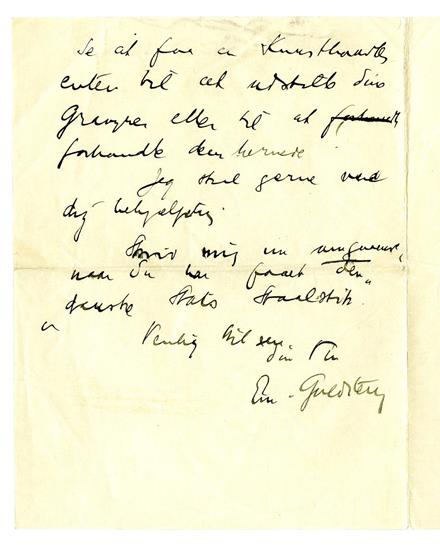 Se at faa en Kunsthandler
enten til at udstille dine
Gravurer eller til at
forhandle dem hernede
Jeg skal gerne være
dig behjælpelig
Skriv mig en
naar Du har faaet den
danske Stats Staalstik"
Venlig Hilsen
din Ven
Em. Goldstein